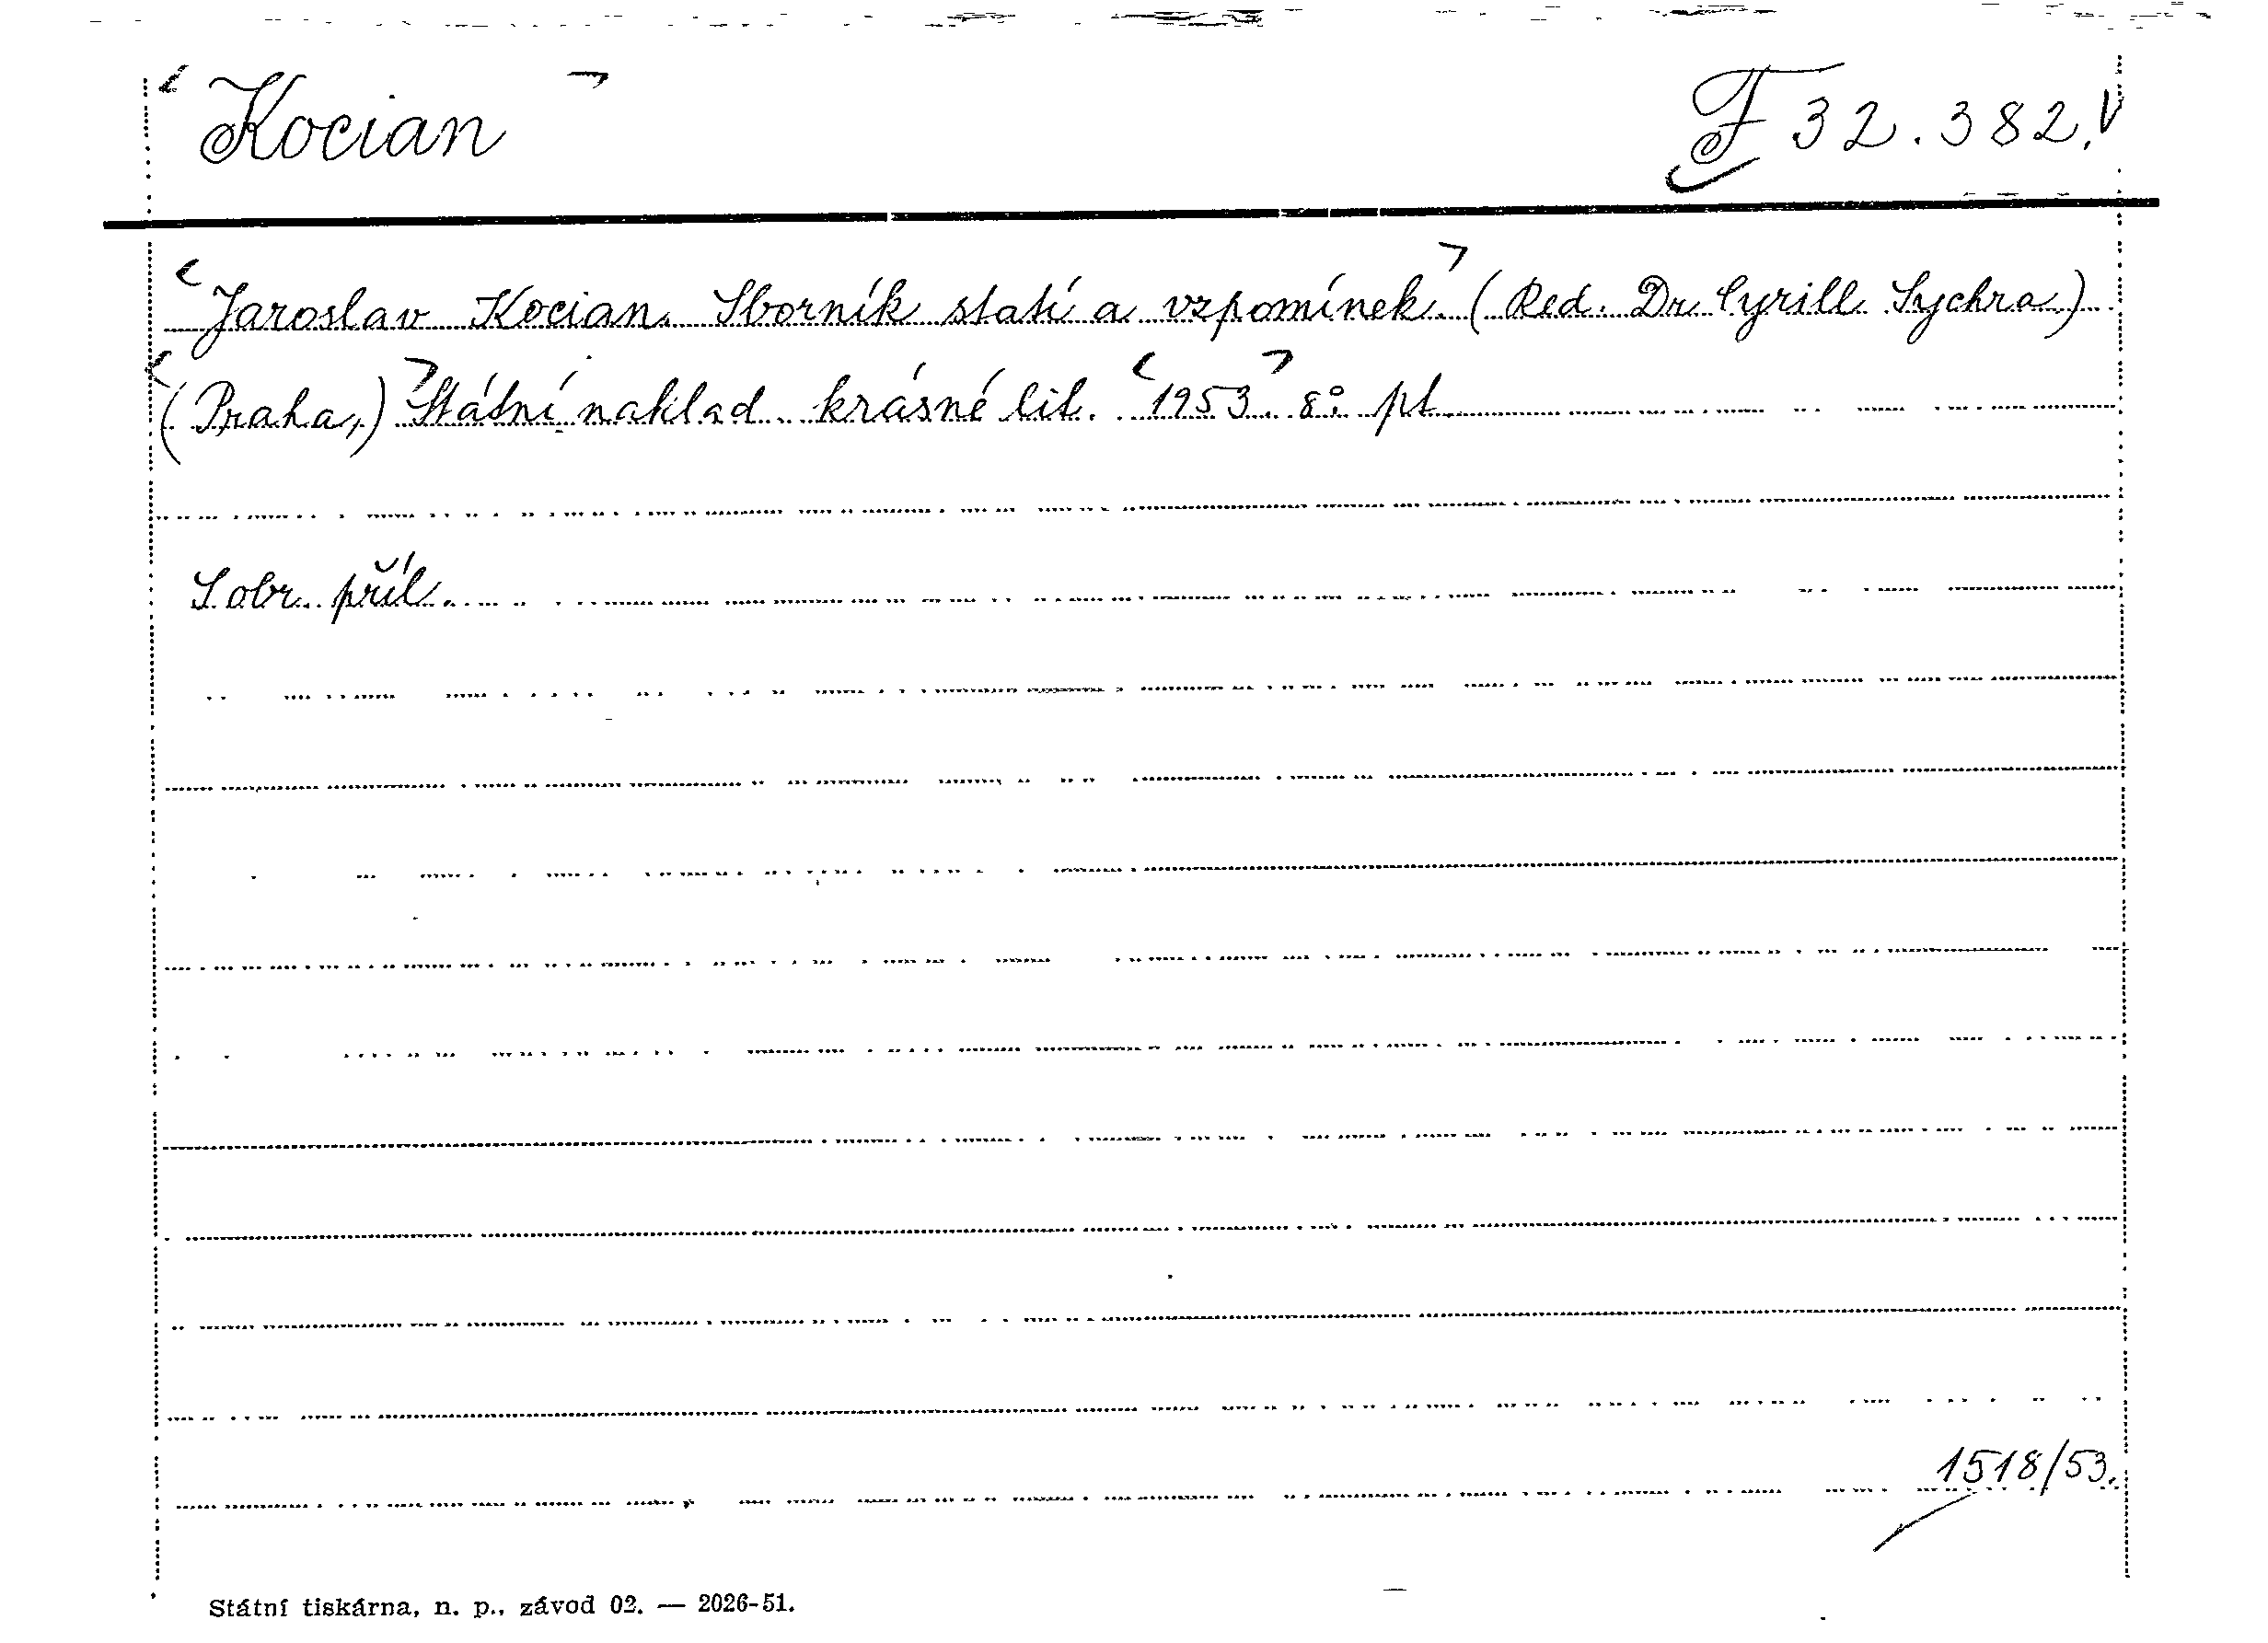 Kocian F 32.382.
Jaroslav Kocian. Sborník statí a vzpomínek. (Red. Dr. Cyrill Sychra.)
(Praha,) Státní naklad. krásné lit. 1953. 8°. pt.
S obr. příl.
1518/53.
Státní tiskárna, n. p., závod 02. — 2026-51.